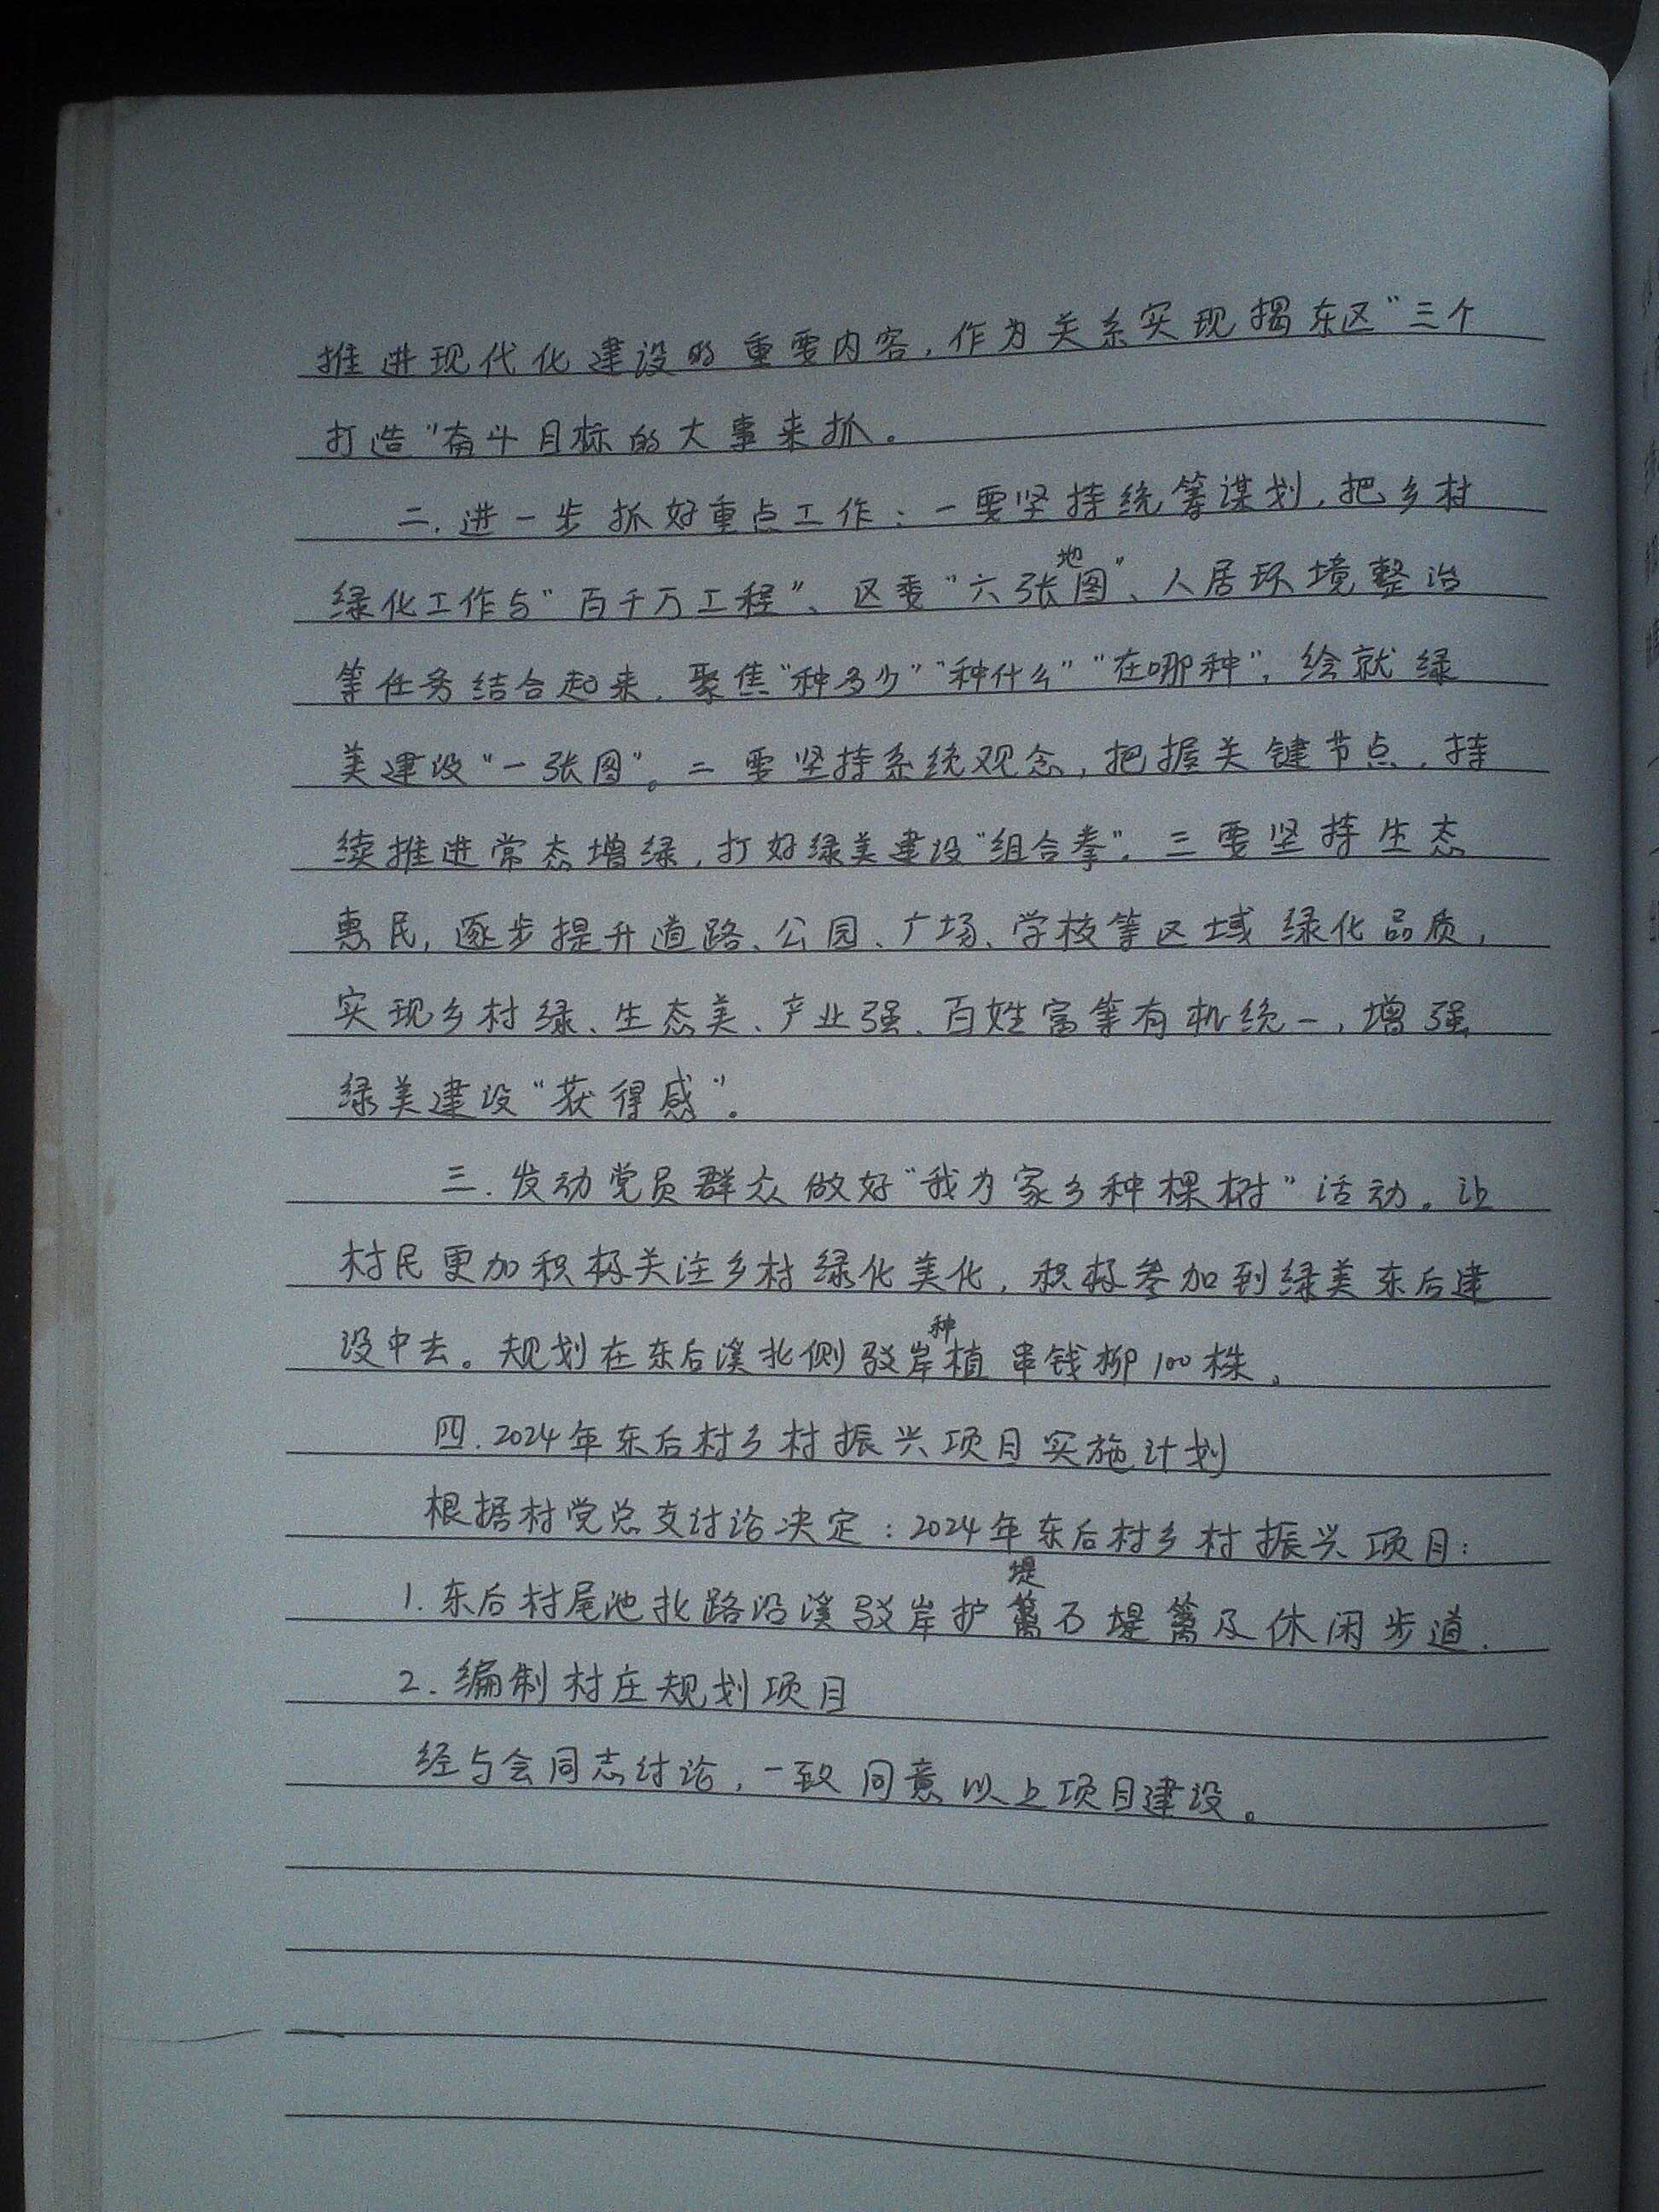 推进现代化建设的重要内容，作为关系实现揭东区“三个
打造”奋斗目标的大事来抓。
二.进一步抓好重点工作：一要坚持统筹谋划，把乡村
绿化工作与“百千万工程”、区委“六张地图”、人居环境整治
等任务结合起来，聚焦“种多少”“种什么”“在哪种”，绘就绿
美建设“一张图”。二要坚持系统观念，把握关键节点，持
续推进常态增绿，打好绿美建设“组合拳”。三要坚持生态
惠民，逐步提升道路、公园、广场、学校等区域绿化品质，
实现乡村绿、生态美、产业强、百姓富等有机统一，增强
绿美建设“获得感”。
三.发动党员群众做好“我为家乡种棵树”活动。让
村民更加积极关注乡村绿化美化，积极参加到绿美东后建
设中去。规划在东后溪北侧驳岸种植串钱柳100株。
四.2024年东后村乡村振兴项目实施计划
根据村党总支讨论决定：2024年东后村乡村振兴项目：
1.东后村尾池北路沿溪驳岸护堤石堤篱及休闲步道.
2.编制村庄规划项目
经与会同志讨论，一致同意以上项目建设。